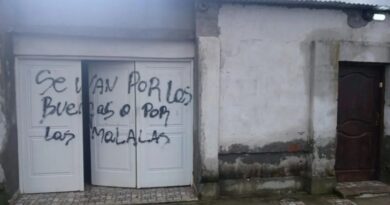 SE VAN POR LAS
BUENAS O POR
LAS MALALAS